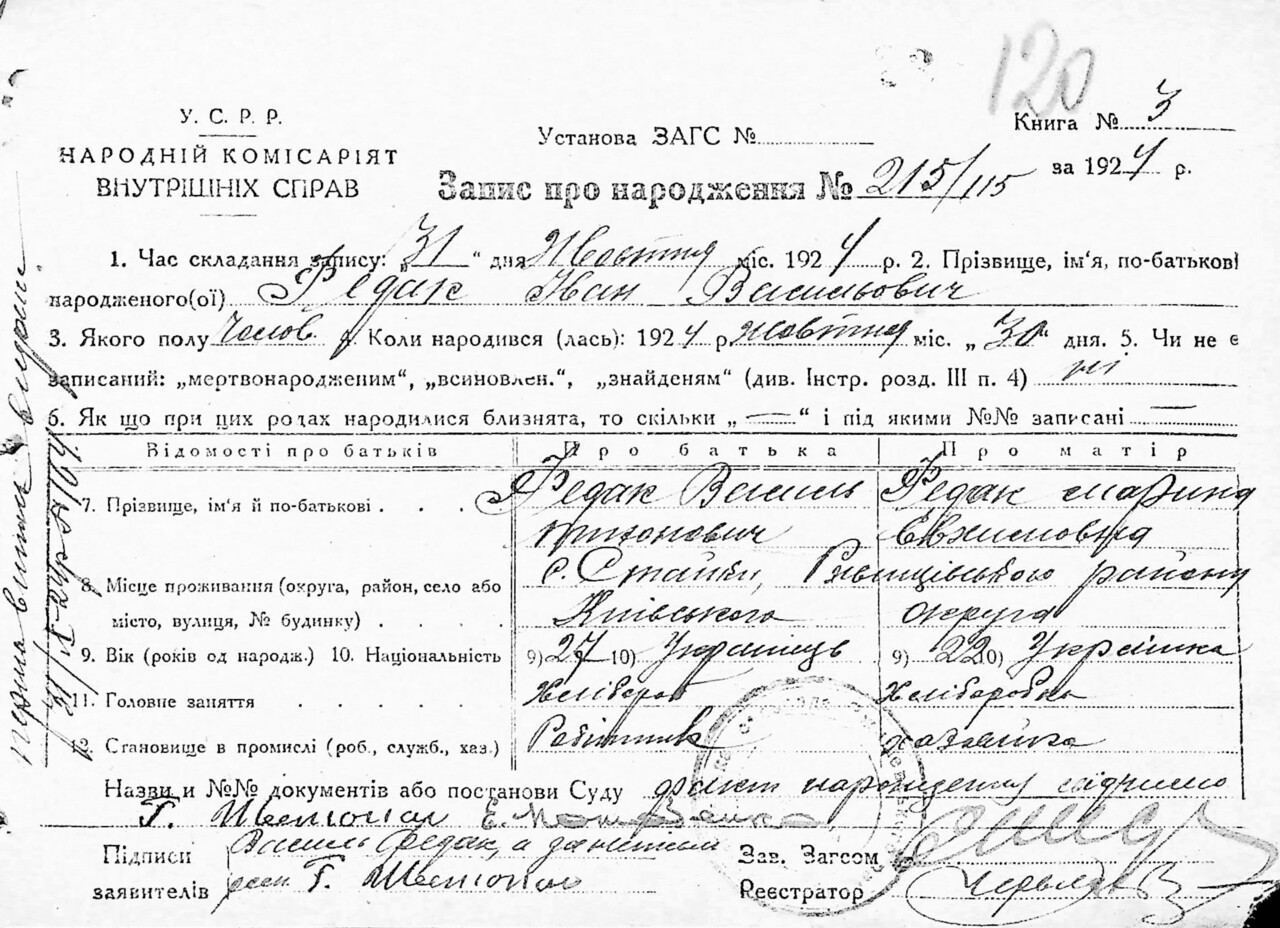 120
У. С. Р. Р.
НАРОДНІЙ КОМІСАРІЯТ
ВНУТРІШНІХ СПРАВ
Установа ЗАГС №
Книга № 3
за 1924 р.
Запис про народження № 215/115
1. Час складання запису: „31“ дня Жовтня міс. 1924 р. 2. Прізвище, ім‘я, по-батькові
народженого(ої) Федак Іван Васильович
3. Якого полу Чолов. 4. Коли народився (лась): 1924 р. Жовтня міс. „30“ дня. 5. Чи не є
записаний: „мертвонародженим“, „всиновлен.“, „знайденям“ (див. Інстр. розд. III п. 4) ні
6. Як що при цих родах народилися близнята, то скільки „ — “ і під якими №№ записані —
Відомості про батьків Про батька Про матір
7. Прізвище, ім‘я й по-батькові . . . Федак Василь Федак Марина
Євхимовна
8. Місце проживання (округа, район, село або с. Стайки, району
місто, вулиця, № будинку) . . . . Київського округа
9. Вік (років од народж.) 10. Національність 9) 27 10) Українець 9) 22 10) Українка
11. Головне заняття . . . . . Хлібороб Хліборобка
12. Становище в промислі (роб., служб., хаз.) Робітник хазяйка
Назви и №№ документів або постанови Суду факт народження
Г.
Підписи Василь Федак, а
заявителів Г.
Зав. Загсом
Реєстратор